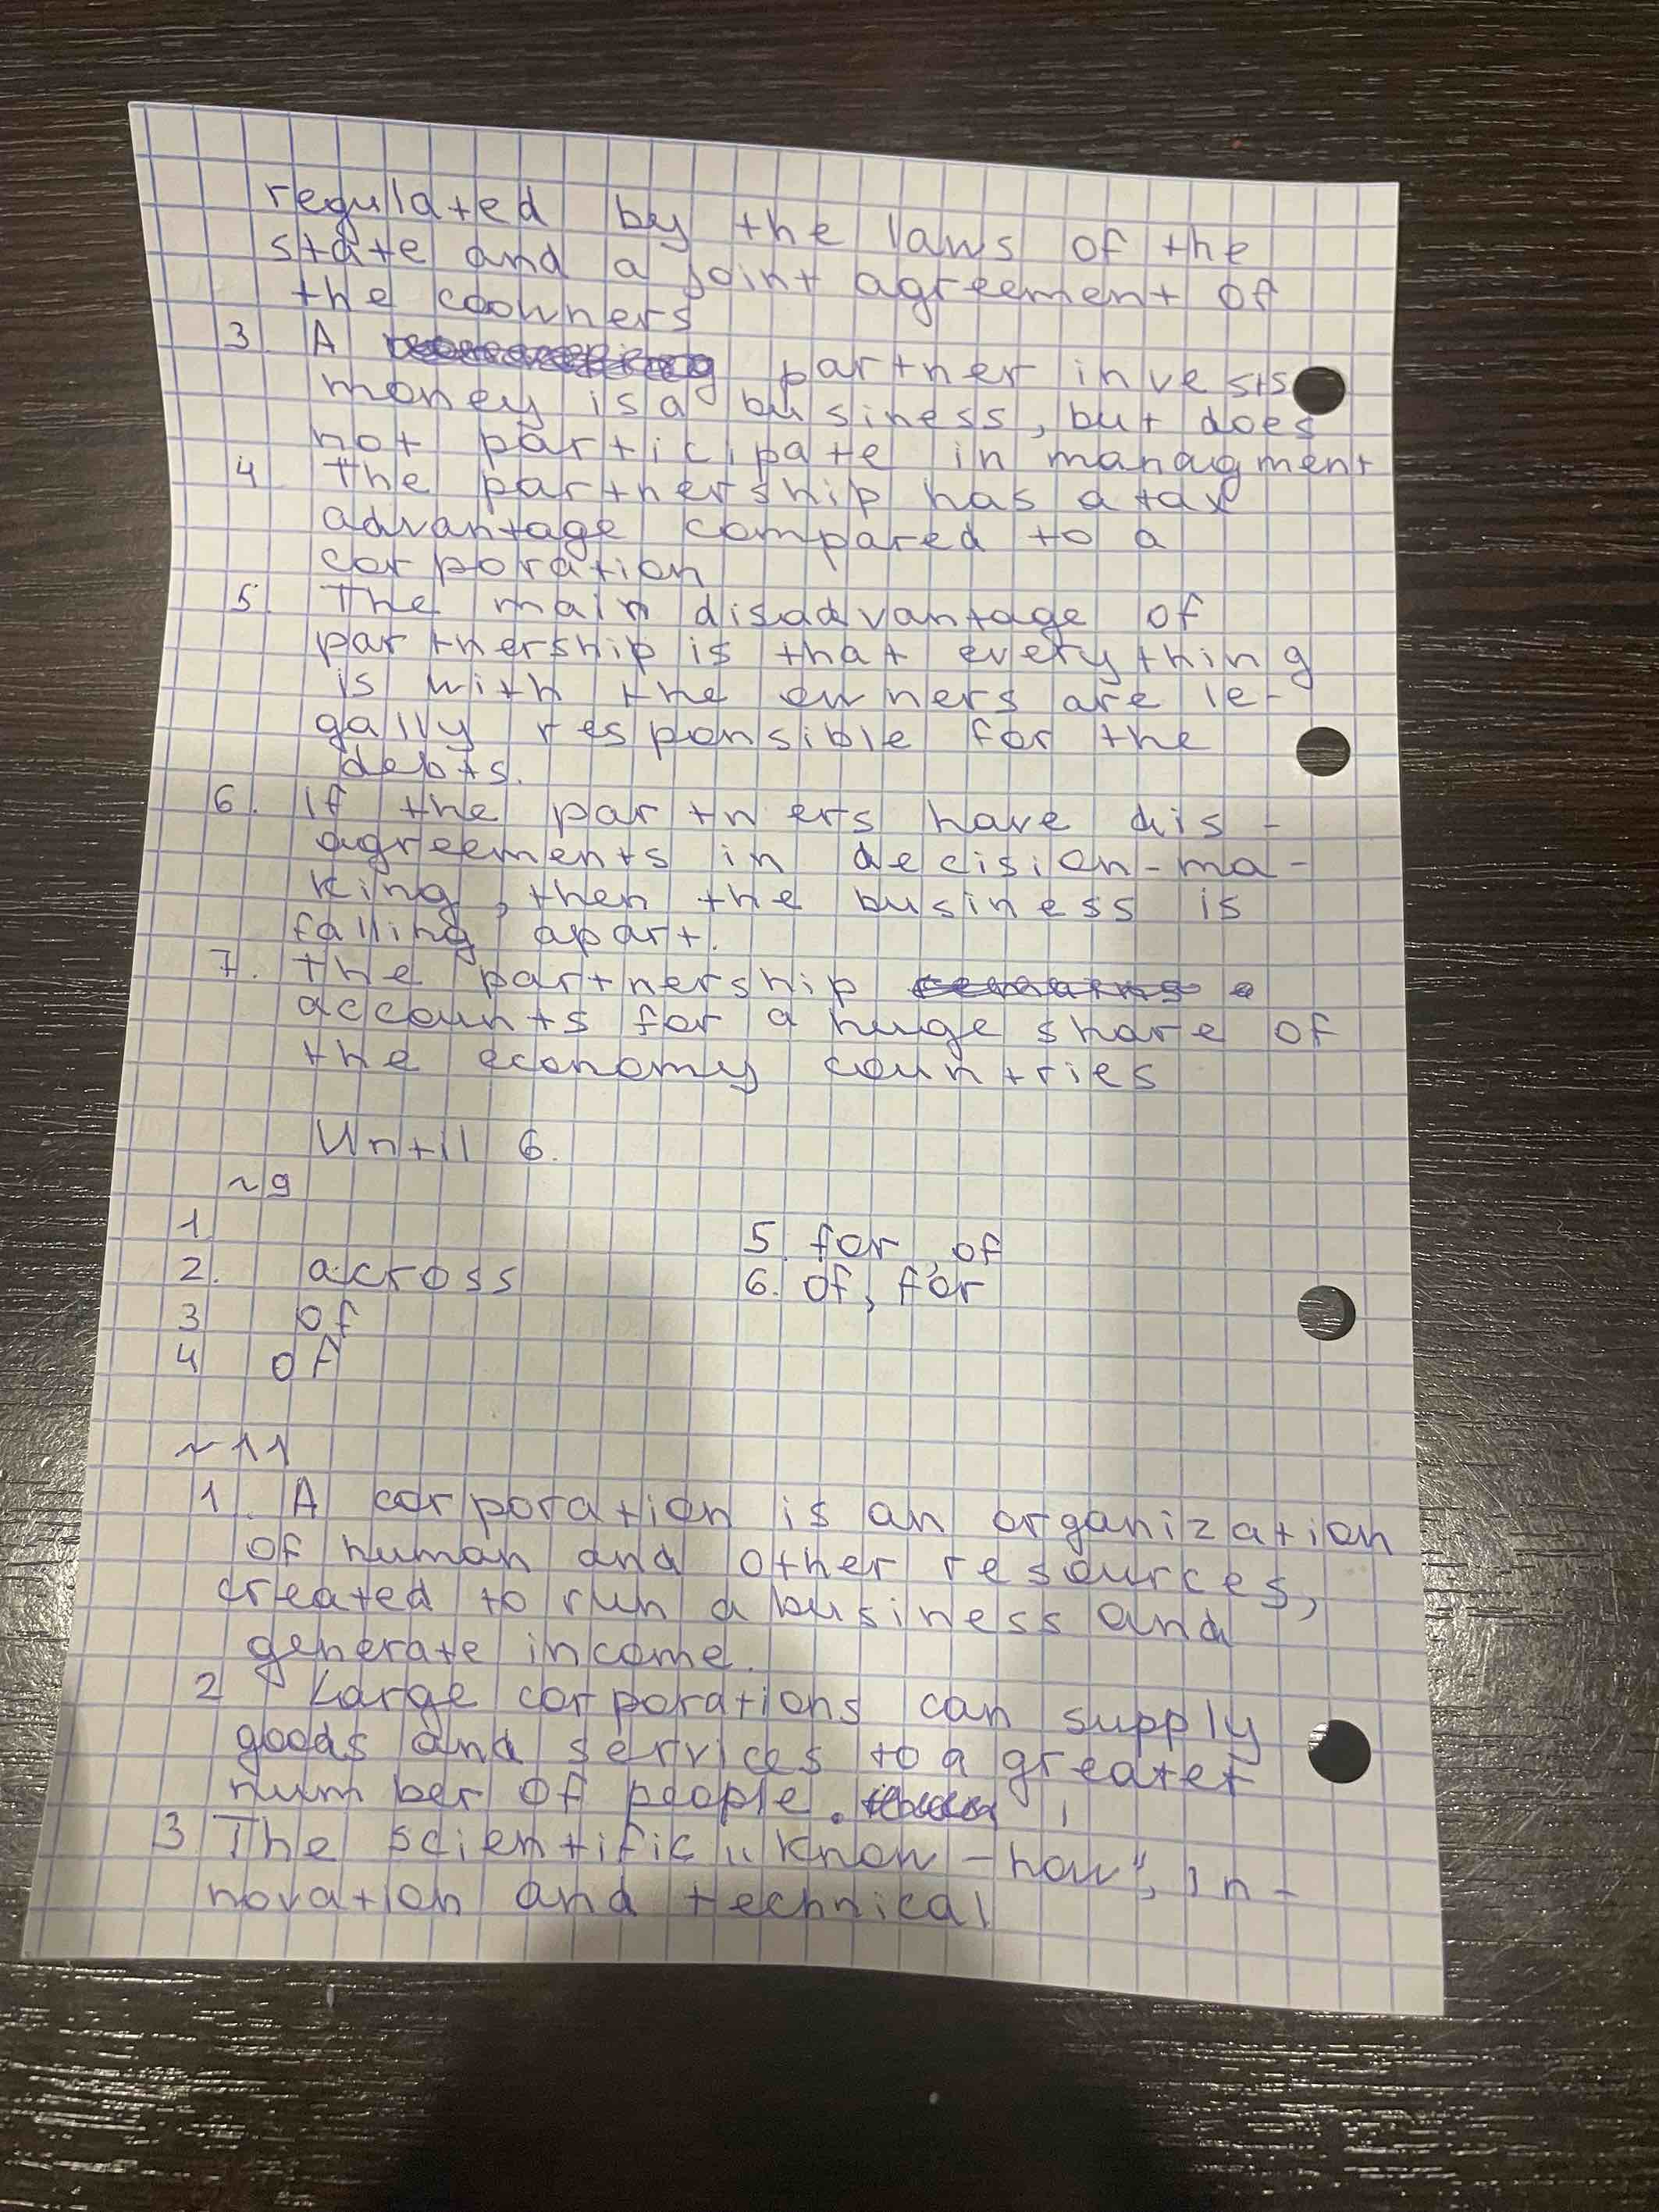 regulated by the laws of the
state and a joint agreement of
the coowners
3. A partner invests
money is a business, but does
not participate in managment
4 The partnership has a tax
advantage compared to a
corporation
5. The main disadvantage of
partnership is that everything
is with the owners are le-
gally responsible for the
debts.
6. If the partners have dis-
agreements in decision-ma-
king, then the business is
falling apart.
7. The partnership
accounts for a huge share of
the economy countries
Until 6.
~9
1
5. for, of
2. across
6. of, for
3 of
4 of
~11
1. A corporation is an organization
of human and other resources,
created to run a business and
generate income.
2 Large corporations can supply
goods and services to a greater
number of people.
3 The scientific „know-how", in-
novation and technical